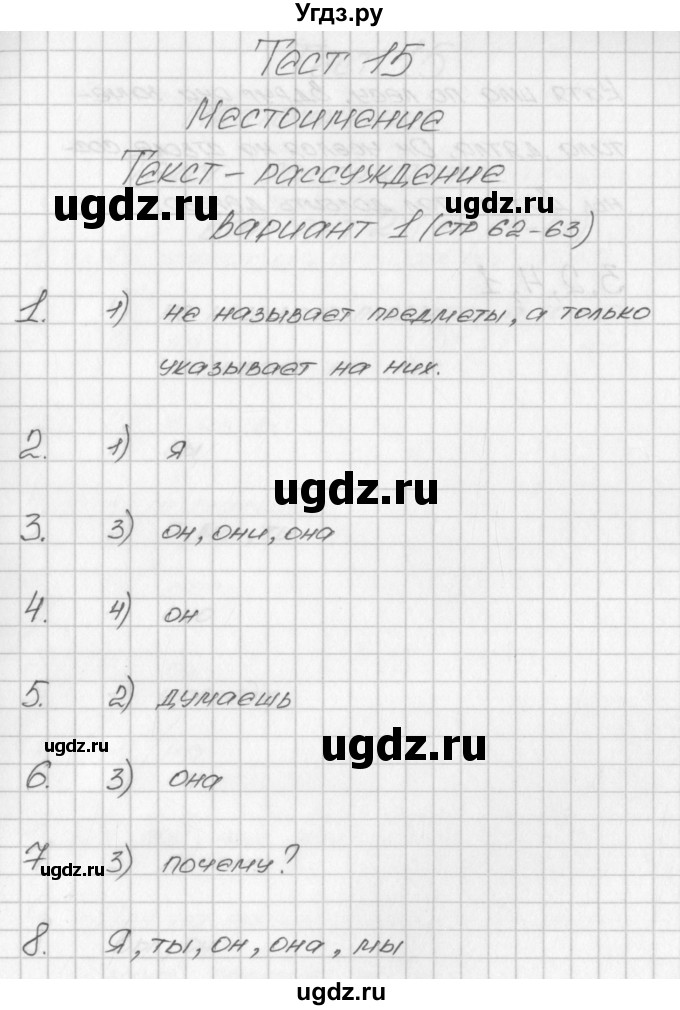 Угдз.ру
Тест 15
Местоимение
Текст - рассуждение
ugdz.ru
ugdz.ru
Вариант 1 (стр 62-63)
1. 1) не называет предметы, а только
указывает на них.
2. 1) я
ugdz.ru
3. 3) он, они, она
4. 4) он
5. 2) думаешь
ugdz.ru
ugdz.ru
6. 3) она
7 3) почему?
ugdz.ru
ugdz.ru
8. Я, ты, он, она, мы
ugdz.ru